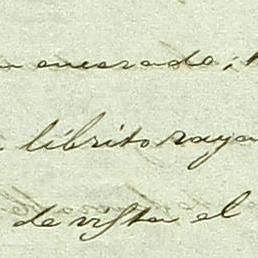 encerado;
librito raya
de vista el